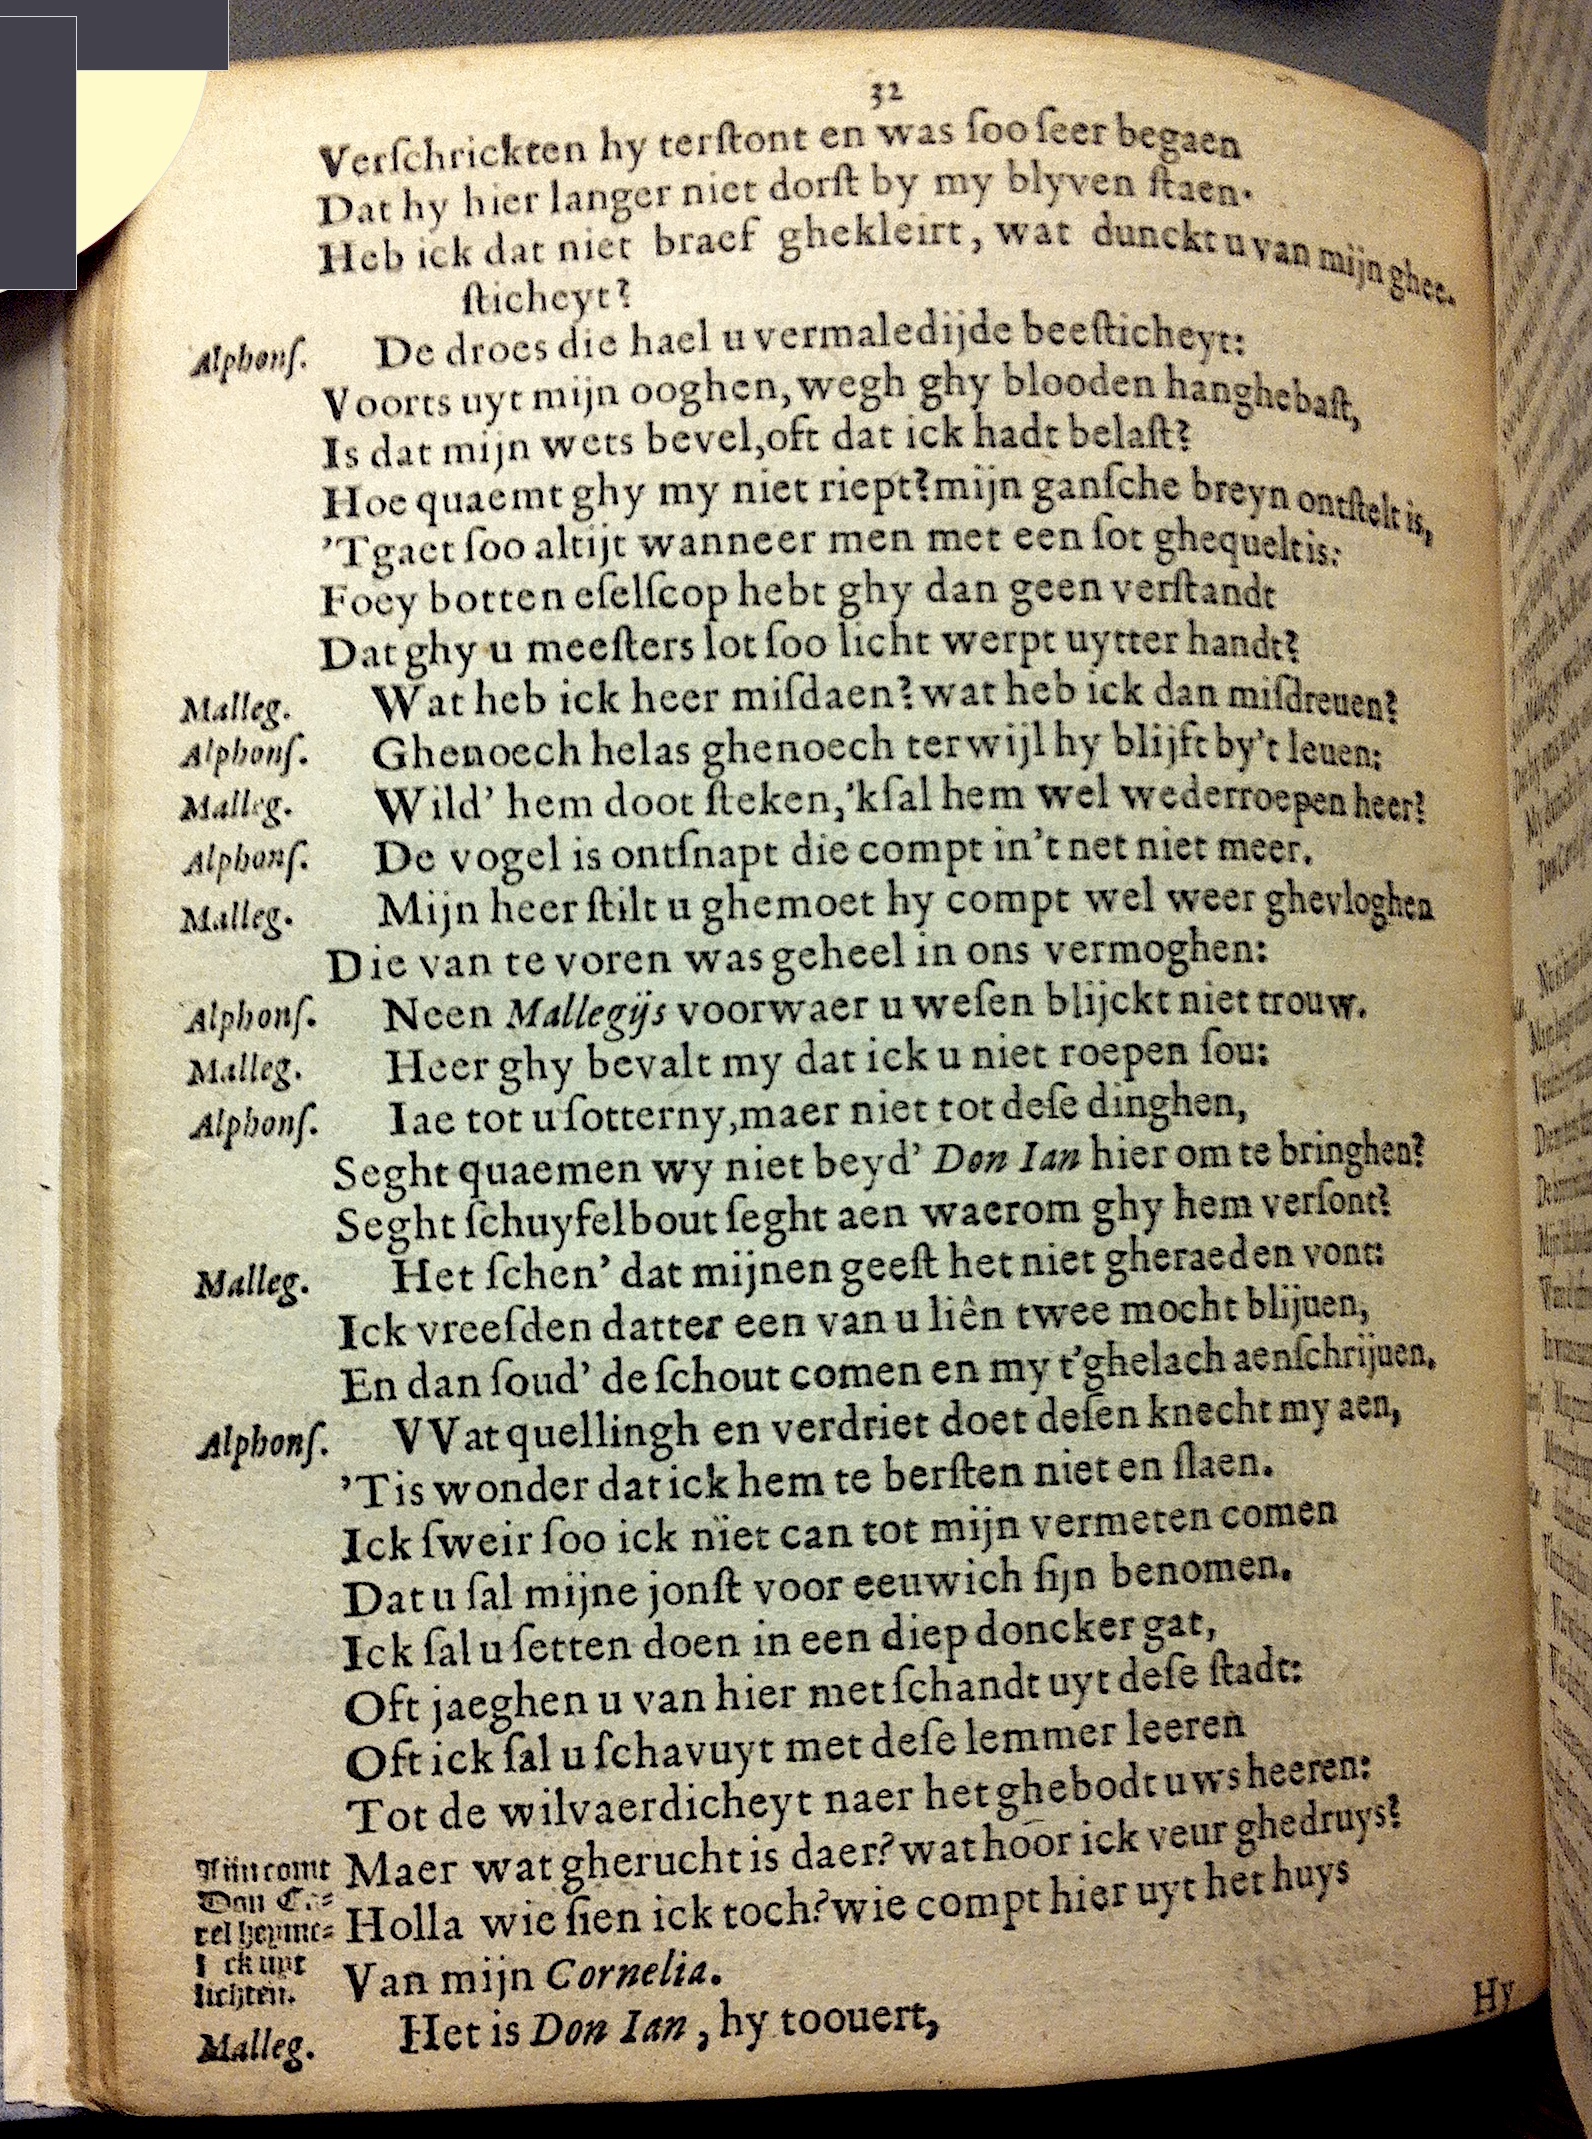 32
Verſchrickten hy terſtont en was ſoo ſeer begaen
Dat hy hier langer niet dorſt by my blyven ſtaen.
Heb ick dat niet braef ghekleirt, wat dunckt u van mijn ghee.
ſticheyt?
Alphonſ. De droes die hael u vermaledijde beeſticheyt:
Voorts uyt mijn ooghen, wegh ghy blooden hanghebaſt,
Is dat mijn wets bevel, oft dat ick hadt belaſt?
Hoe quaemt ghy my niet riept? mijn ganſche breyn ontſtelt is,
'Tgaet ſoo altijt wanneer men met een ſot ghequelt is:
Foey botten eſelſcop hebt ghy dan geen verſtandt
Dat ghy u meeſters lot ſoo licht werpt uytter handt?
Malleg. Wat heb ick heer miſdaen? wat heb ick dan miſdreuen?
Alphonſ. Ghenoech helas ghenoech terwijl hy blijft by't leuen:
Malleg. Wild' hem doot ſteken, 'kſal hem wel wederroepen heer?
Alphonſ. De vogel is ontſnapt die compt in't net niet meer.
Malleg. Mijn heer ſtilt u ghemoet hy compt wel weer ghevloghen
Die van te voren was geheel in ons vermoghen:
Alphonſ. Neen Mallegijs voorwaer u weſen blijckt niet trouw.
Malleg. Heer ghy bevalt my dat ick u niet roepen ſou:
Alphonſ. Iae tot u ſotterny, maer niet tot deſe dinghen,
Seght quaemen wy niet beyd' Don Ian hier om te bringhen?
Seght ſchuyfelbout ſeght aen waerom ghy hem verſont?
Malleg. Het ſchen' dat mijnen geeſt het niet gheraeden vont:
Ick vreeſden datter een van u liên twee mocht blijuen,
En dan ſoud' de ſchout comen en my t'ghelach aenſchrijuen.
Alphonſ. VVat quellingh en verdriet doet deſen knecht my aen,
'Tis wonder dat ick hem te berſten niet en ſlaen.
Ick ſweir ſoo ick niet can tot mijn vermeten comen
Dat u ſal mijne jonſt voor eeuwich ſijn benomen.
Ick ſal u ſetten doen in een diep doncker gat,
Oft jaeghen u van hier met ſchandt uyt deſe ſtadt:
Oft ick ſal u ſchavuyt met deſe lemmer leeren
Tot de wilvaerdicheyt naer het ghebodt uws heeren:
comt Maer wat gherucht is daer? wat hoor ick veur ghedruys?
Don Holla wie ſien ick toch? wie compt hier uyt het huys
lichten. Van mijn Cornelia.
Malleg. Het is Don Ian, hy toouert,
Hy